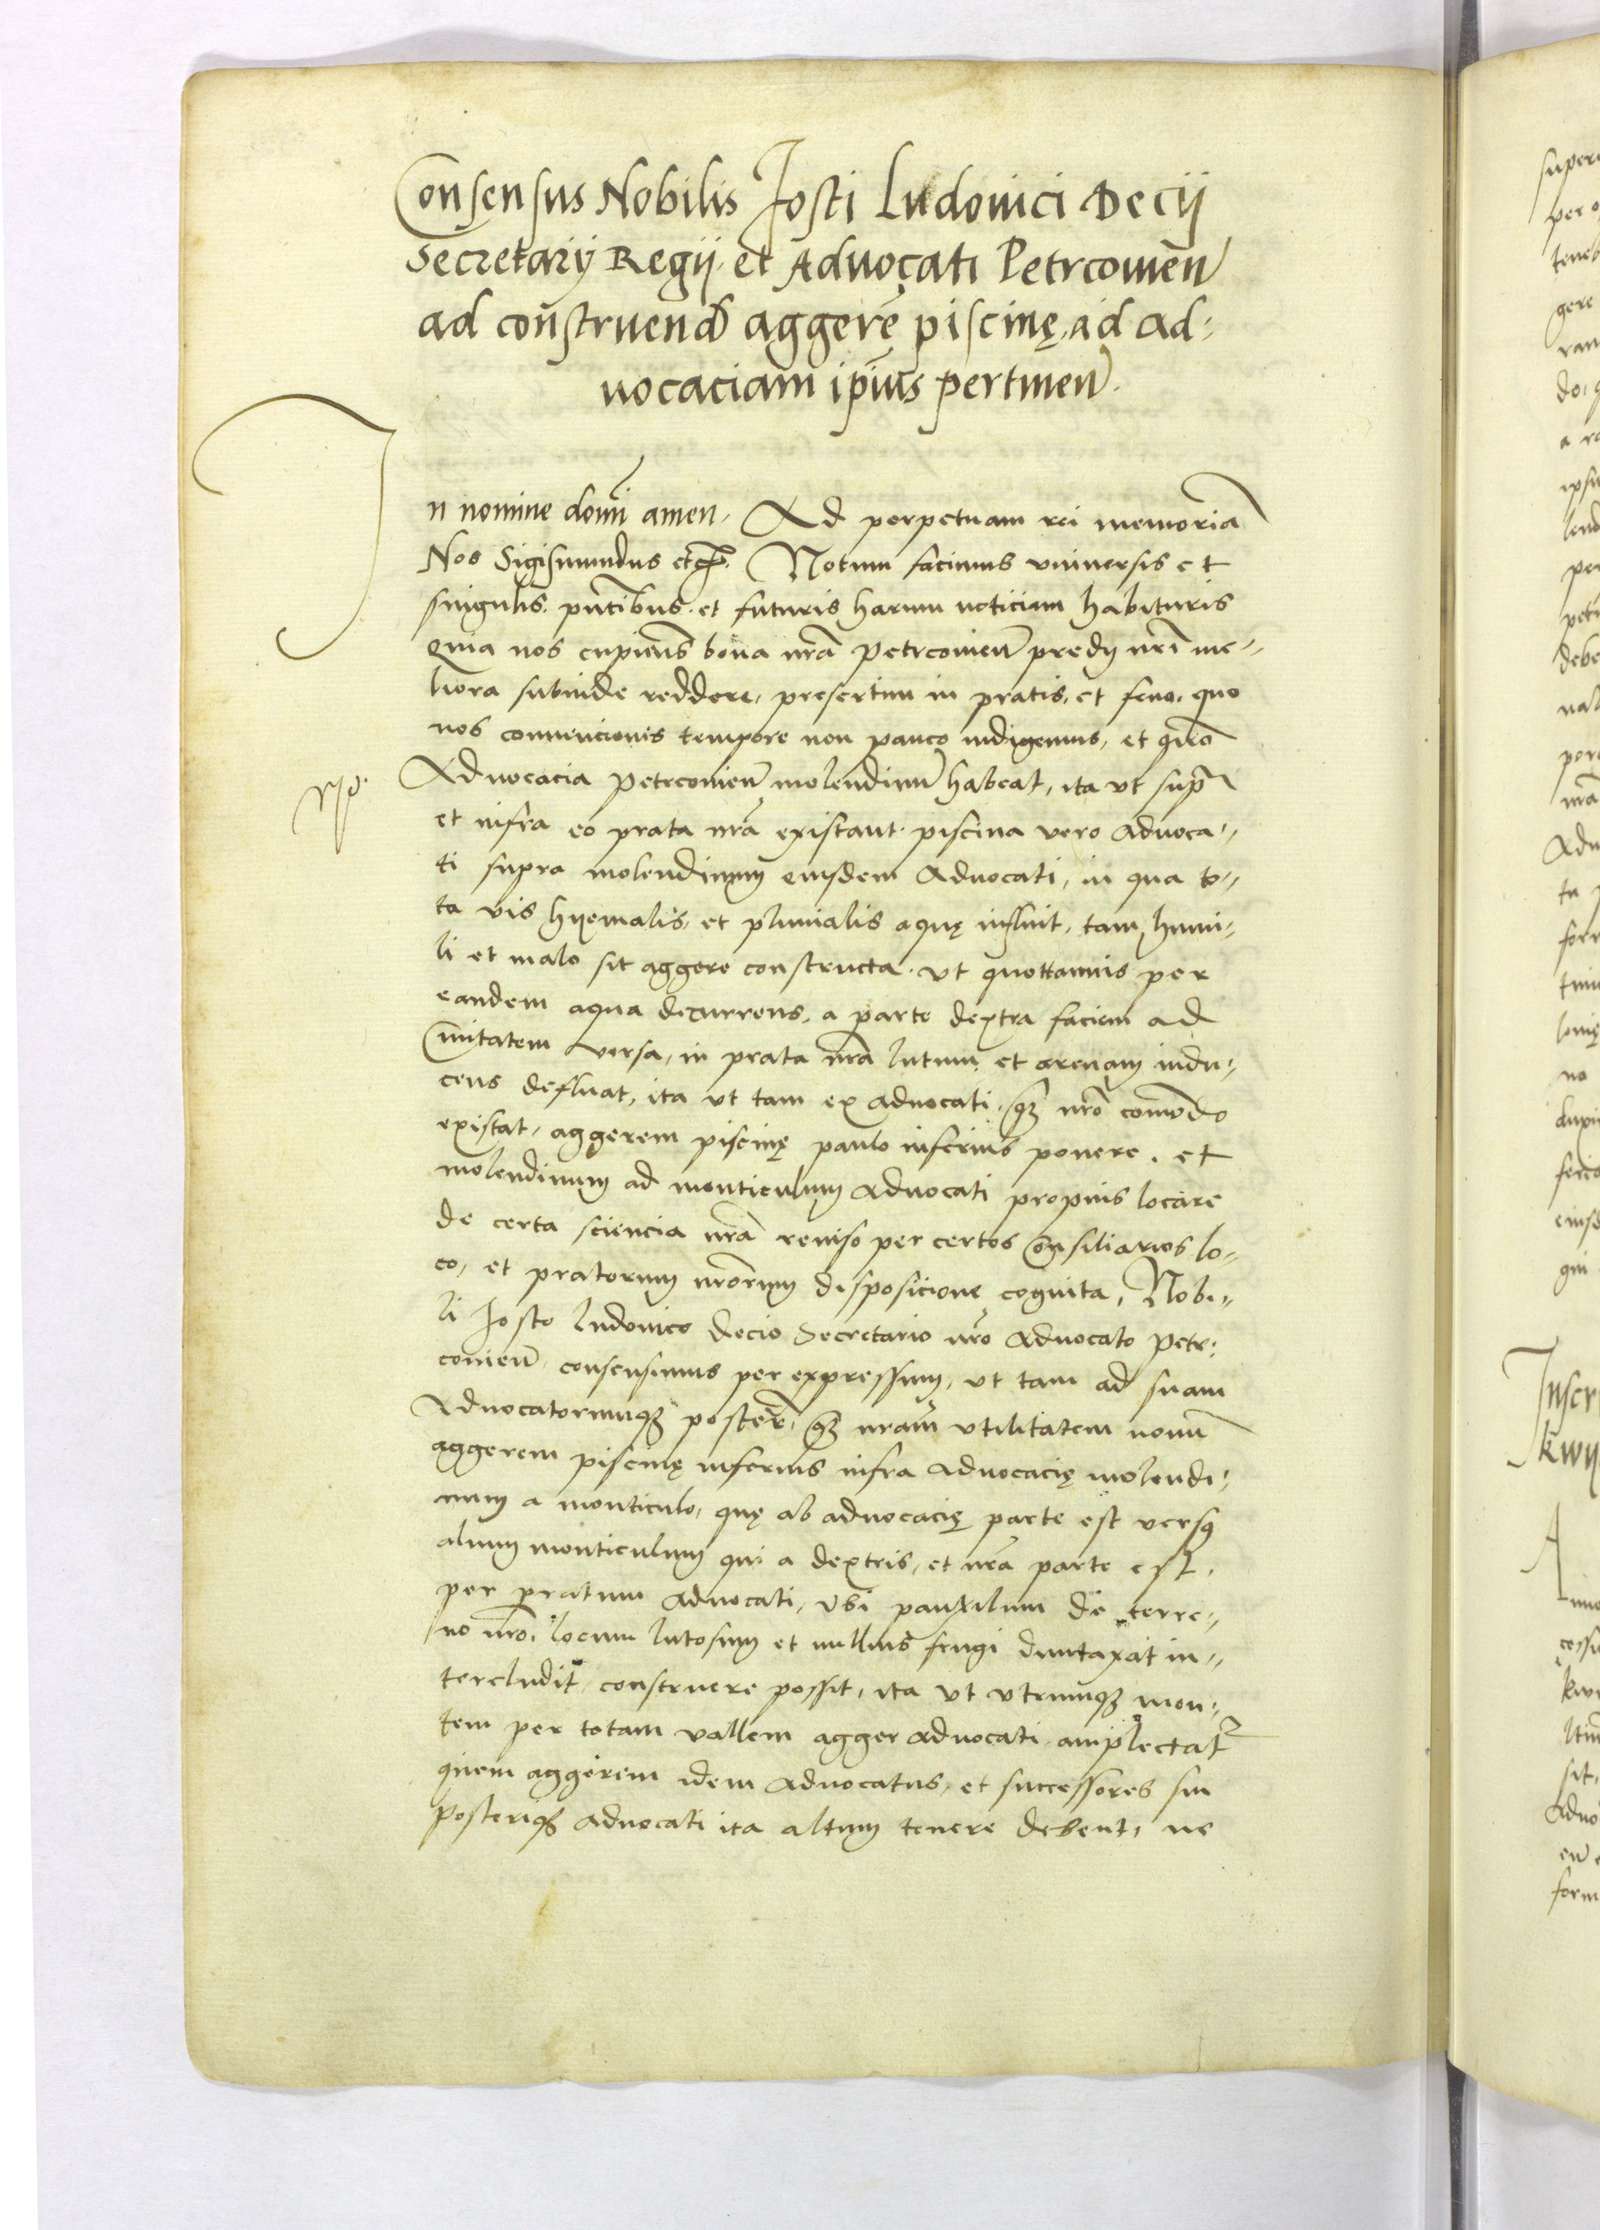 Consensus Nobilis Josti Ludouici Decij
Secretarij Regij et Aduocati Petrcouien̄
ad construend aggerē piscinę, ad ad⸗
uocaciam ipīus pertinen̄.
In nomine domī amen. Ad perpetuam rei memoriā
Nos Sigismundus etc. Notum facimus vniuersis et
singulis pn̄tibus et futuris harum noticiam habituris
Quia nos cupien̄s bona nr̄a Petrcouien̄ predij nr̄i me⸗
liora subinde reddere, presertim in pratis, et feno, quo
nos conuencionis tempore non pauco indigemus, et quō
Aduocacia Petrcouien̄ molendinū habeat, ita vt supra
et infra eo prata nr̄a existant. piscina vero aduoca⸗
ti supra molendinum eiusdem Aduocati, in qua to⸗
ta vis hyemalis, et pluuialis aquę influit, tam humi⸗
li et malo sit aggere constructa, vt quottannis per
eandem aqua decurrens, a parte dextra faciem ad
ciuitatem versa, in prata nr̄a lutum et arenam indu⸗
cens defluat, ita vt tam ex aduocati qz nr̄o com̄odo
existat, aggerem piscinę paulo inferius ponere, et
molendinum ad monticulum aduocati propius locare
de certa sciencia nr̄a reuiso per certos Consiliarios lo⸗
co, et pratorum nr̄orum disposicione cognita, Nobi⸗
li Josto Ludouico Decio Secretario nr̄o Aduocato Petr⸗
couien̄ consensimus per expressum, vt tam ad suam
Aduocatorumqz poster, qz nr̄am vtilitatem nouū
aggerem piscinę inferius infra aduocacię molendi⸗
num a monticulo, quę ab aduocacię parte est versus
alium monticulum qui a dextris, et nr̄a parte est,
per pratum aduocati, vbi pauxilum de terre⸗
no nr̄o, locum lutosum et nullius frugi duntaxat in⸗
tercludit construere possit, ita vt vtrumqz mon⸗
tem per totam vallem agger aduocati amplectatur
quem aggerem idem aduocatus, et successores sui
posteriqz aduocati ita altum tenere debent, ne